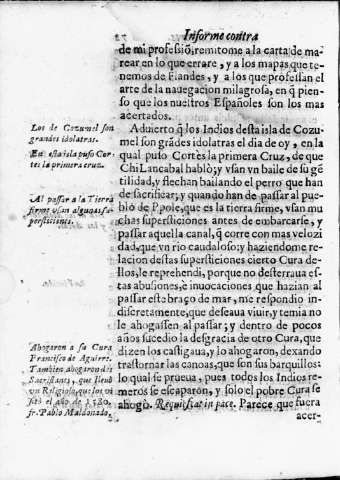 Informe contra
de mi professiõ, remitome a la carta de ma-
rear en lo que errare, y a los mapas que te-
nemos de Flandes, y a los que professan el
arte de la nauegacion milagrosa, en q̃ pien-
so que los nuestros Españoles son los mas
acertados.
Los de Cozumel son
grandes idolatras.
Aduierto q̃ los Indios desta isla de Cozu-
mel son grãdes idolatras el dia de oy, en la
En esta isla puso Cor
tes la primera cruz.
qual puso Cortès la primera Cruz, de que
Chi Lancabal hablò; y vsan vn baile de su gẽ
tilidad, y flechan bailando el perro que han
de sacrificar; y quando han de passar al pue-
Al passar a la Tierra
firme vsan algunas su-
persticiones.
blo de Ppole, que es la tierra firme, vsan mu
chas supersticiones antes de embarcarse, y
passar aquella canal, q̃ corre con mas velozi
dad, que vn rio caudaloso; y haziendome re-
lacion destas supersticiones cierto Cura de-
llos, le reprehendi, porque no desterraua es-
tas abusiones, è inuocaciones que hazian al
passar este braço de mar, me respondio in-
discretamente, que deseaua viuir, y temia no
le ahogassen al passar; y dentro de pocos
años sucedio la desgracia de otro Cura, que
Ahogaron a su Cura
Francisco de Aguirre.
Tambien ahogaron dos
Sacristanes, que lleuò
vn Religioso, que los vi
sitò el año de 1580.
fr. Pablo Maldonado.
dizen los castigaua, y lo ahogaron, dexando
trastornar las canoas, que son sus barquillos:
lo qual se prueua, pues todos los Indios re-
meros se escaparon, y solo el pobre Cura se
ahogò. Requiescat in pace. Parece que fuera
acer-